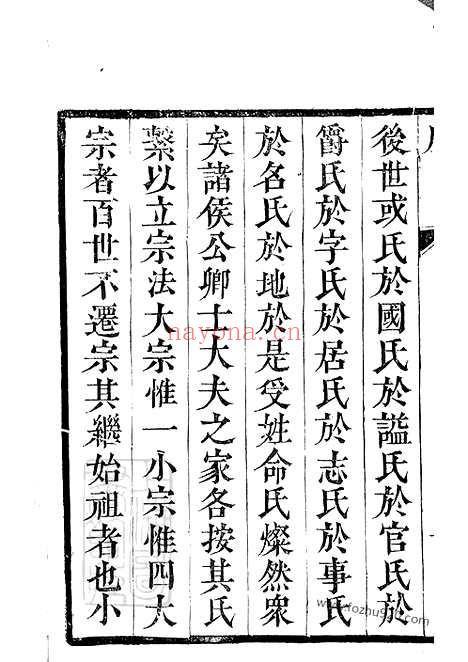 後世或氏於國氏於謚氏於官氏於
爵氏於字氏於居氏於志氏於事氏
於名氏於地於是受姓命氏燦然衆
矣諸侯公卿士大夫之家各按其氏
繫以立宗法大宗惟一小宗惟四大
宗者百世不遷宗其繼始祖者也小
nayona.cn
www.fozhu920.com